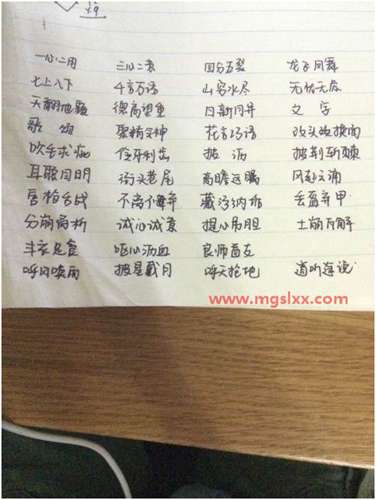 一心二用 三心二意 四分五裂 龙飞凤舞
七上八下 千言万语 山穷水尽 无忧无虑
天翻地覆 德高望重 日新月异 文字
歌颂 聚精会神 花言巧语 改头换面
吹毛求疵 伶牙利齿 披历 披荆斩棘
耳聪目明 街头巷尾 高瞻远瞩 风起云涌
唇枪舌战 藏污纳垢 丢盔弃甲
分崩离析 诚心诚意 提心吊胆 土崩瓦解
丰衣足食 呕心沥血 良师益友
呼风唤雨 披星戴月 呼天抢地 道听途说
www.mgslxx.com